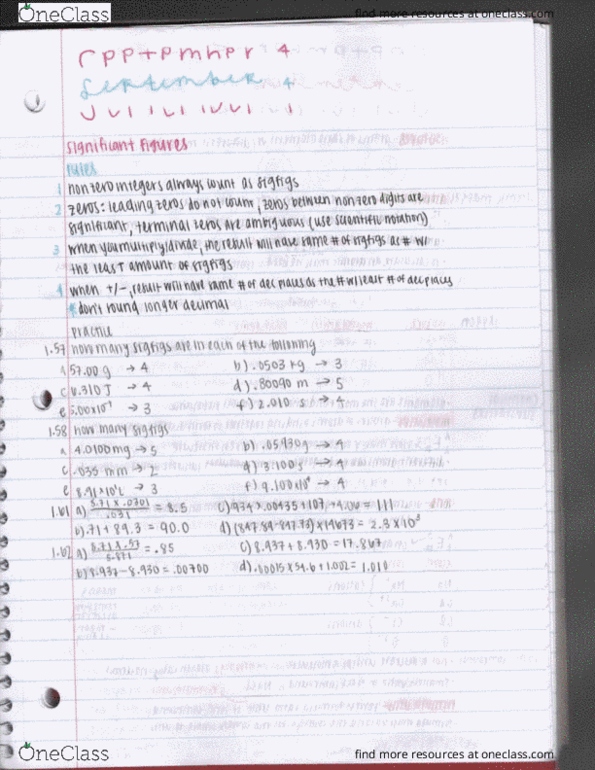 OneClass
find more resources at oneclass.com
September 4
Significant Figures
rules
1 nonzero integers always count as sigfigs
2 zeros: leading zeros do not count, zeros between nonzero digits are
significant, terminal zeros are ambiguous (use scientific notation)
3 when you multiply/divide, the result will have same # of sigfigs as # w/
the least amount of sigfigs
4 when +/-, result will have same # of dec places as the # w/ least # of dec places
* don't round longer decimal
Practice
1.57 how many sigfigs are in each of the following
a) 57.00 g → 4 b) .0503 kg → 3
c) 6.310 J → 4 d) .80090 m → 5
e) → 3 f) 2.010 s → 4
1.58 how many sigfigs
a. 4.0100 mg → 5 b) .05930 g → 4
c. .035 mm → 2 d) 3.100 s → 4
e → 3 f) → 4
1.61 a) = 8.5 c) = 111
b) .71 + 89.3 = 90.0 d) (847.89-847.73) × 14673 = 2.3 × 10³
1.62 a) = .85 c) 8.937 + 8.930 = 17.867
b) 8.937 - 8.930 = .00700 d) .00015 × 54.6 + 1.002 = 1.010
OneClass
find more resources at oneclass.com